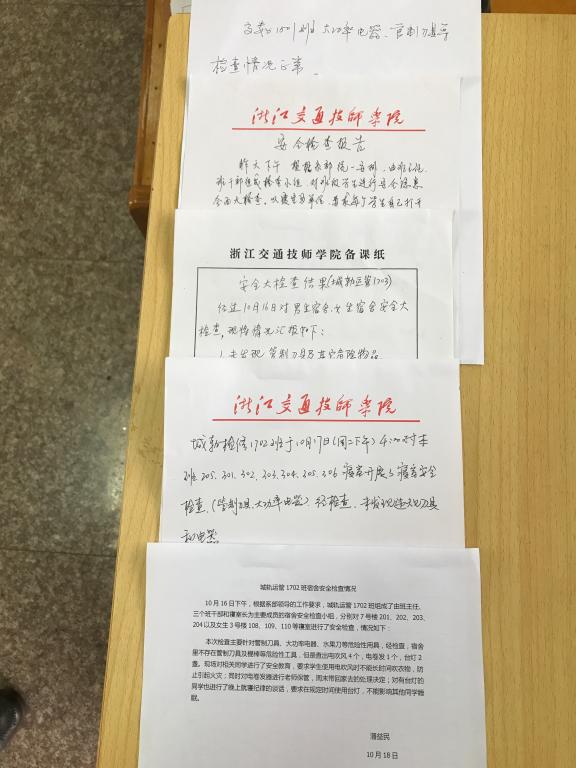 检查情况正常。
浙江交通技师学院
安全检查报告
昨天下午 根据系部统一安排，由班主任
班干部组成检查小组，对班级学生进行安全隐患
全面大检查。以寝室为单位，首先每个学生自己打开
浙江交通技师学院备课纸
安全大检查结果(城轨运管1703)
经过10月16日对男生宿舍、女生宿舍安全大
检查，现将情况汇报如下：
1. 未发现管制刀具及其它危险物品
浙江交通技师学院
城轨检修1702班于10月17日(周二下午)4:00对本
班205、301、302、303、304、305、306寝室开展了寝室安全
检查，(管制刀具、大功率电器)经检查，未发现违规刀具
和电器
城轨运管1702班宿舍安全检查情况
10月16日下午，根据系部领导的工作要求，城轨运管1702班组成了由班主任、
三个班干部和寝室长为主要成员的宿舍安全检查小组，分别对7号楼201、202、203、
204以及女生3号楼108、109、110等寝室进行了安全检查，情况如下：
本次检查主要针对管制刀具、大功率电器、水果刀等危险性用具，经检查，宿舍
里不存在管制刀具及棍棒等危险性工具，但是查出电吹风4个，电卷发1个，台灯2
盏。现场对相关同学进行了安全教育，要求学生使用电吹风时不能长时间吹衣物，防
止引起火灾；同时对电卷发器进行老师保管，周末带回家去的处理决定；对有台灯的
同学也进行了晚上就寝纪律的谈话，要求在规定时间使用台灯，不能影响其他同学睡
眠。
潘益民
10月18日